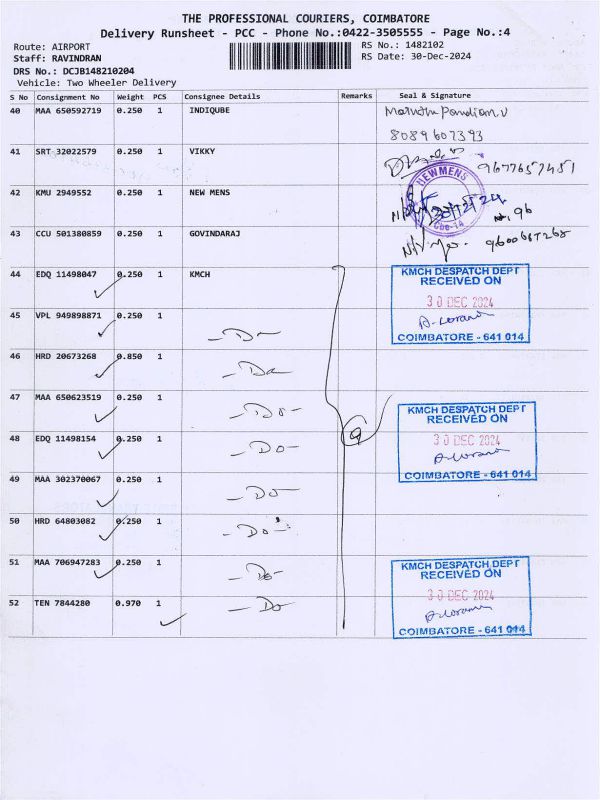 THE PROFESSIONAL COURIERS, COIMBATORE
Delivery Runsheet - PCC - Phone No.:0422-3505555 - Page No.:4
Route: AIRPORT RS No.: 1482102
Staff: RAVINDRAN RS Date: 30-Dec-2024
DRS No.: DCJB148210204
Vehicle: Two Wheeler Delivery
S No Consignment No Weight PCS Consignee Details Remarks Seal & Signature
40 MAA 650592719 0.250 1 INDIQUBE
8089607393
41 SRT 32022579 0.250 1 VIKKY
9677657451
42 KMU 2949552 0.250 1 NEW MENS
NEWMENS
Cbe-14
43 CCU 501380859 0.250 1 GOVINDARAJ
44 EDQ 11498047 0.250 1 KMCH
KMCH DESPATCH DEPT
RECEIVED ON
30 DEC 2024
COIMBATORE - 641 014
45 VPL 949898871 0.250 1
- Do -
46 HRD 20673268 0.850 1
- Do
47 MAA 650623519 0.250 1 - Do -
KMCH DESPATCH DEPT
RECEIVED ON
30 DEC 2024
COIMBATORE - 641 014
48 EDQ 11498154 0.250 1 - Do -
9
49 MAA 302370067 0.250 1
- Do -
50 HRD 64803082 0.250 1 - Do -
51 MAA 706947283 0.250 1
- Do -
KMCH DESPATCH DEPT
RECEIVED ON
30 DEC 2024
COIMBATORE - 641 014
52 TEN 7844280 0.970 1 - Do